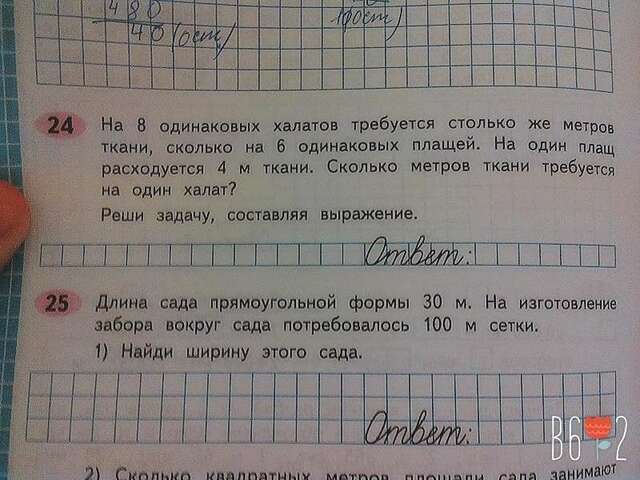 480
40 (ост)
(ост)
24 На 8 одинаковых халатов требуется столько же метров
ткани, сколько на 6 одинаковых плащей. На один плащ
расходуется 4 м ткани. Сколько метров ткани требуется
на один халат?
Реши задачу, составляя выражение.
Ответ:
25 Длина сада прямоугольной формы 30 м. На изготовление
забора вокруг сада потребовалось 100 м сетки.
1) Найди ширину этого сада.
Ответ:
В6 2
2) Сколько квадратных метров площади сада занимают